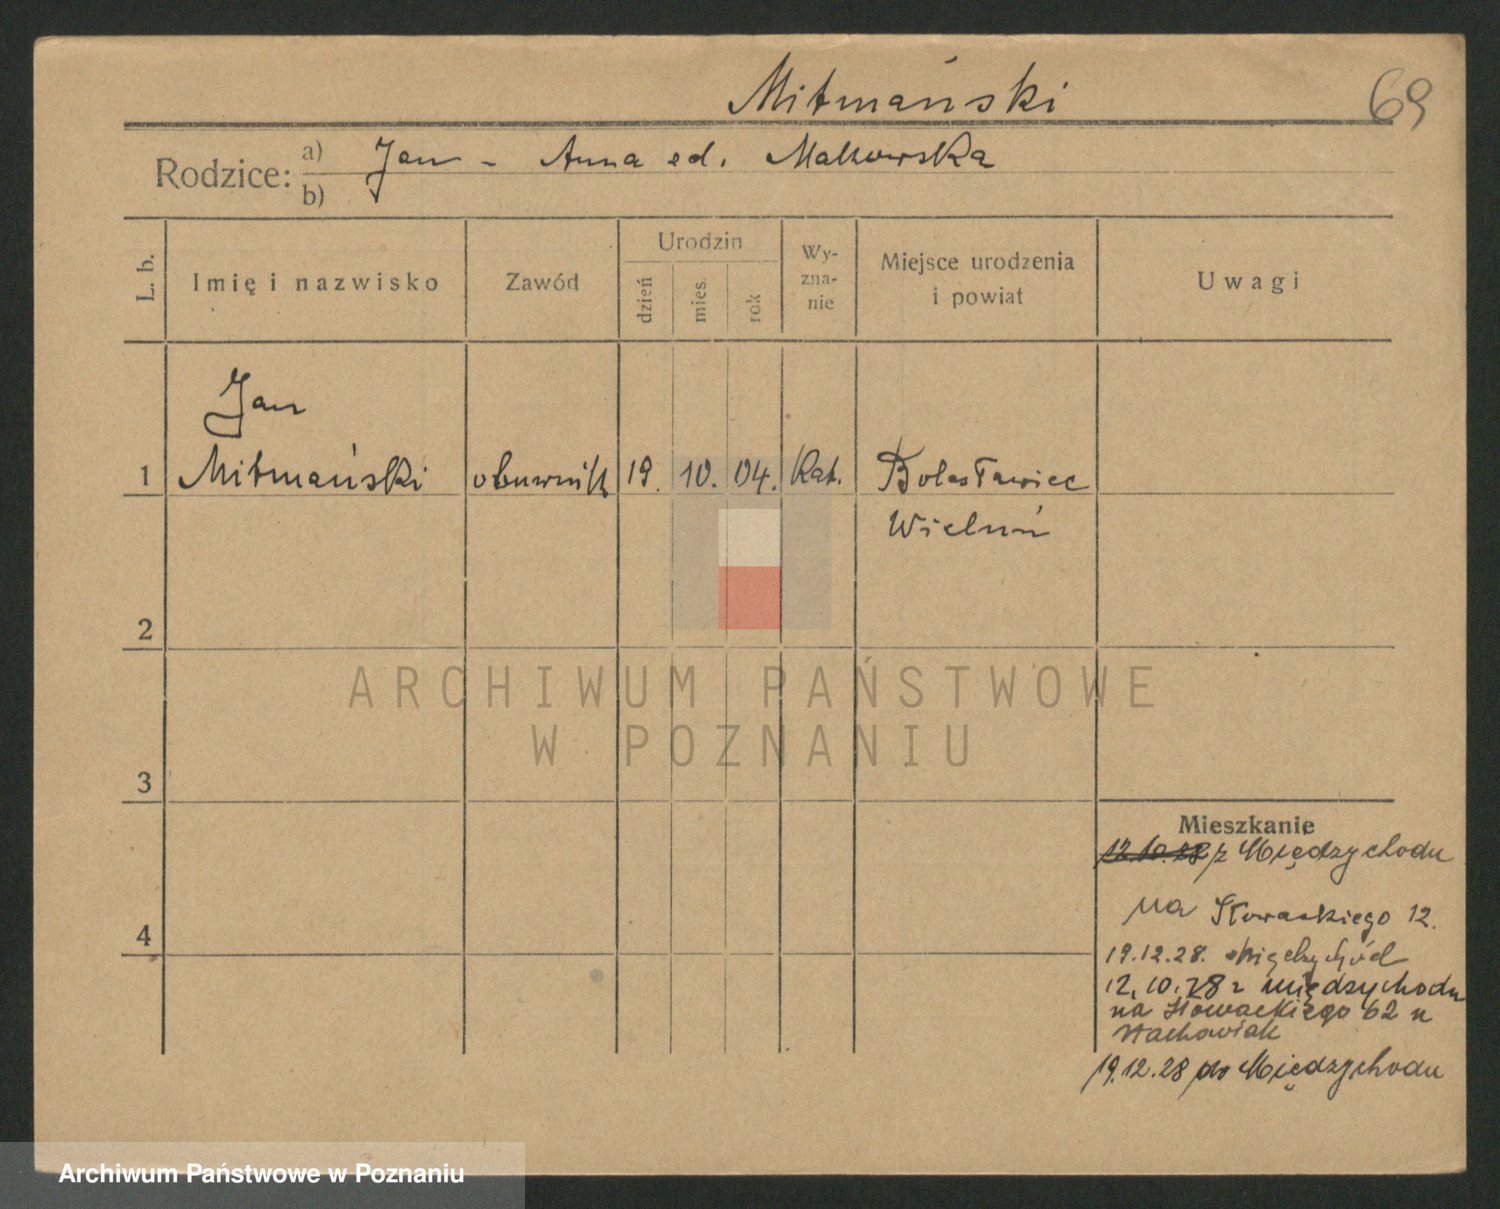 Mitmański
69
Rodzice: a) b) Jan - Anna ed. Malkowska
L. b.
Imię i nazwisko
Zawód
Urodzin
dzień
mies
rok
Wy-
zna-
nie
Miejsce urodzenia
i powiat
Uwagi
Jan
1 Mitmański obuwnik 19. 10. 04. Kat. Bolesławiec
Wieluń
2
3
4
ARCHIWUM PAŃSTWOWE
W POZNANIU
Mieszkanie
12.10.28 z Międzychodu
na Słowackiego 12.
19.12.28. Międzychód
12.10.28 z Międzychodu
na Słowackiego 62 u
Stachowiak
19.12.28 do Międzychodu
Archiwum Państwowe w Poznaniu